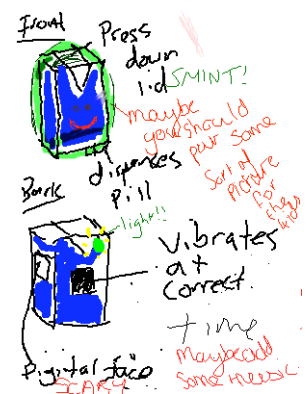 Front
Press
down
lid
SMINT!
maybe
you should
put some
sort of
picture
for
the
kid
dispenses
pill
Back
light!!
vibrates
at
correct
time
Digital face
SCARY
Maybe add
some music